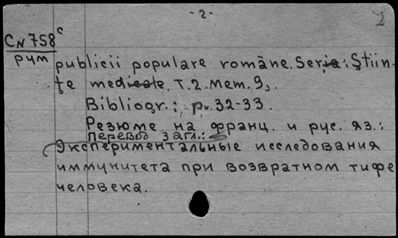 - 2 -
2
CN 758 c
рум
publicii populare române. Seria: Ştiin-
ţe medicale. T. 2. Mem. 9,
Bibliogr.: p. 32-33.
Резюме на франц. и рус. яз.:
Перевод загл.:
Экспериментальные исследования
иммунитета при возвратном тифе
человека.